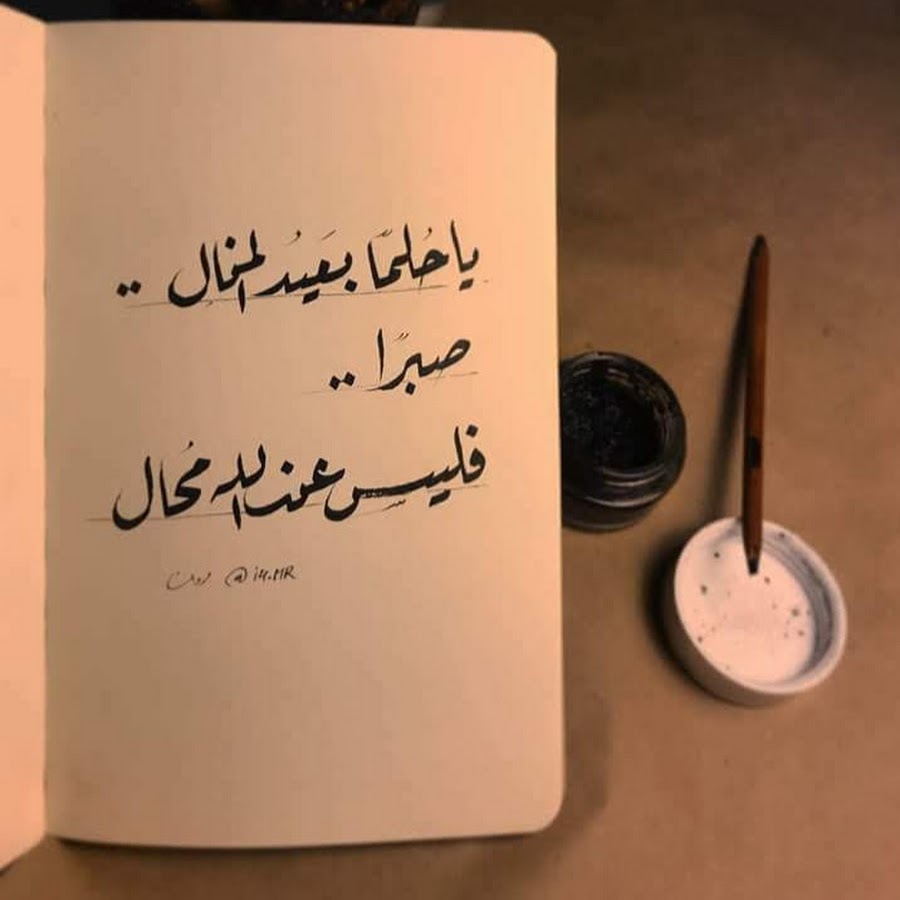 يا حُلمًا بعَيدُ المنال ..
صبرًا ..
فليس عند الله مُحال
@i4.MR